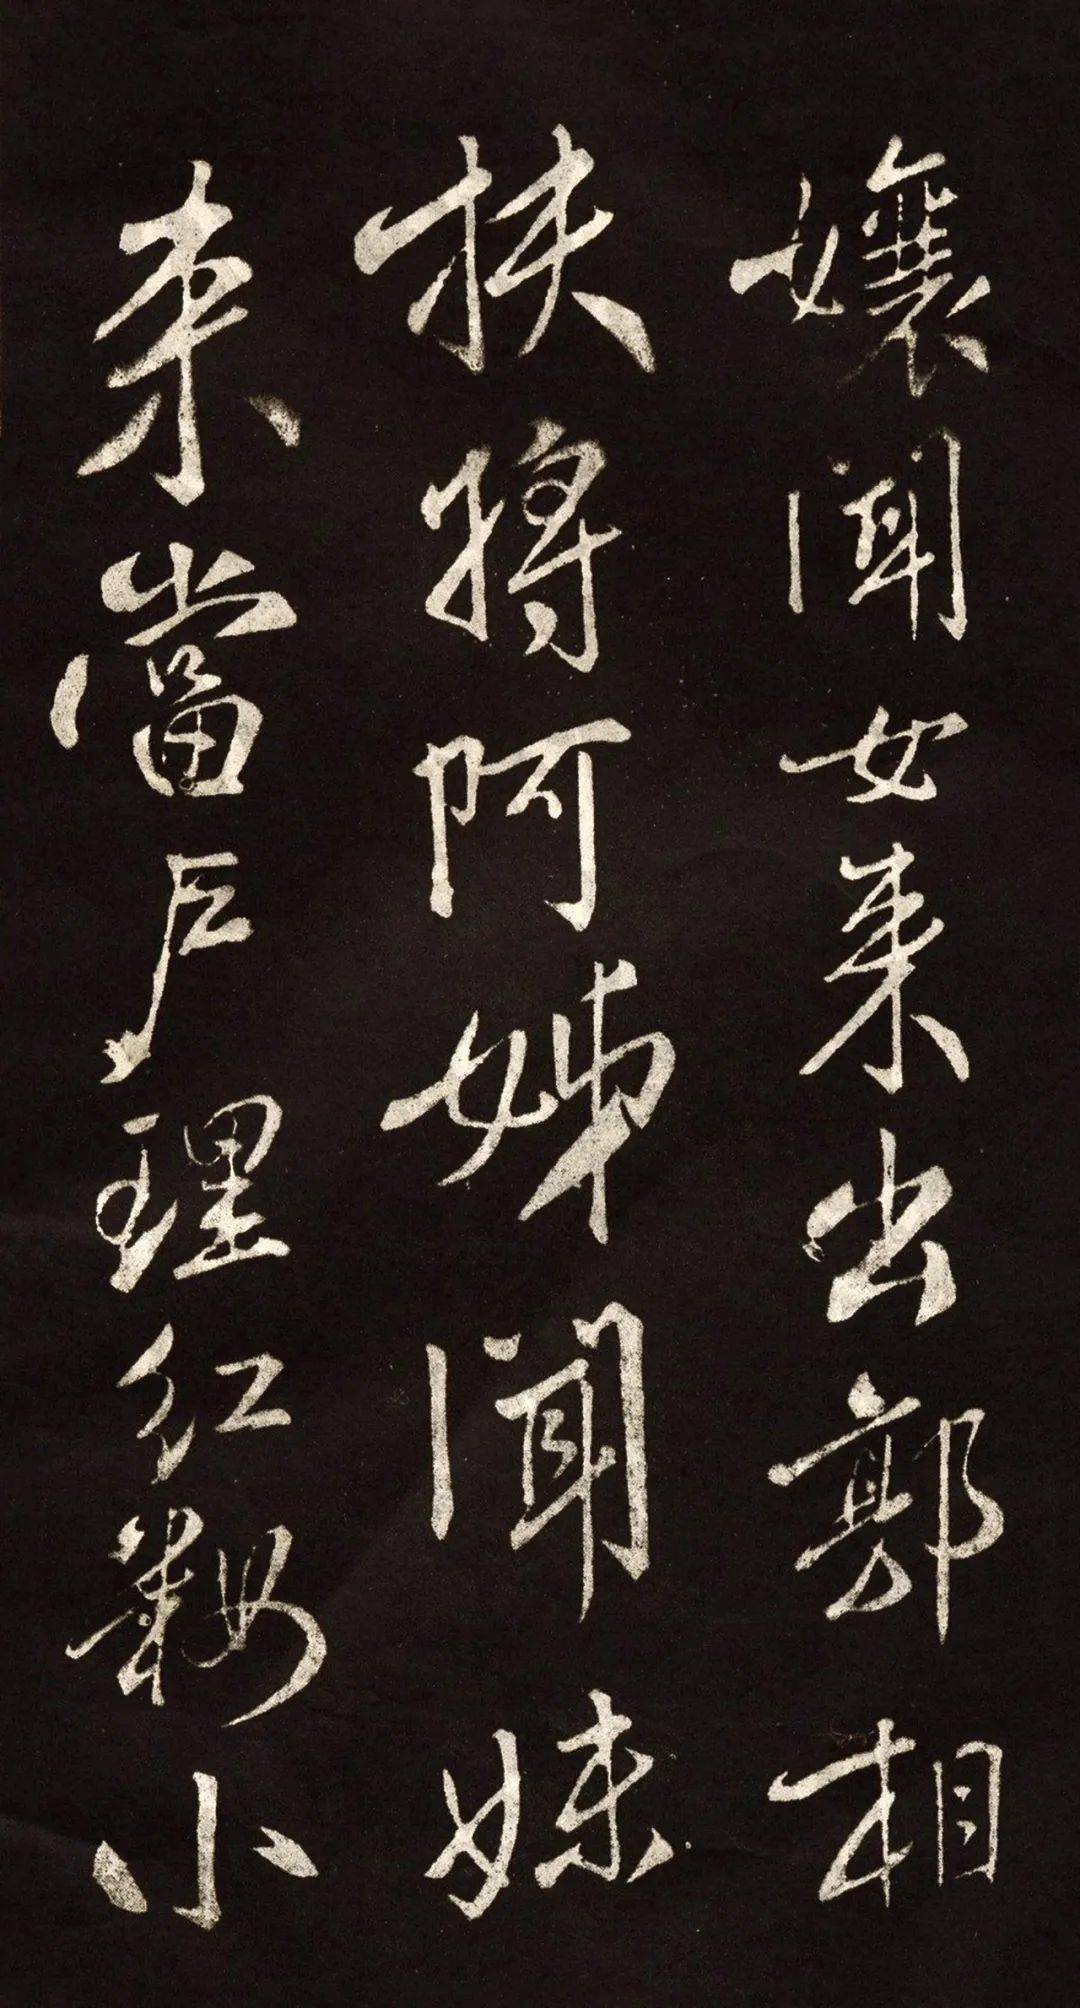 孃聞女来出郭相
扶將阿姊聞妹
来當户理紅粧小